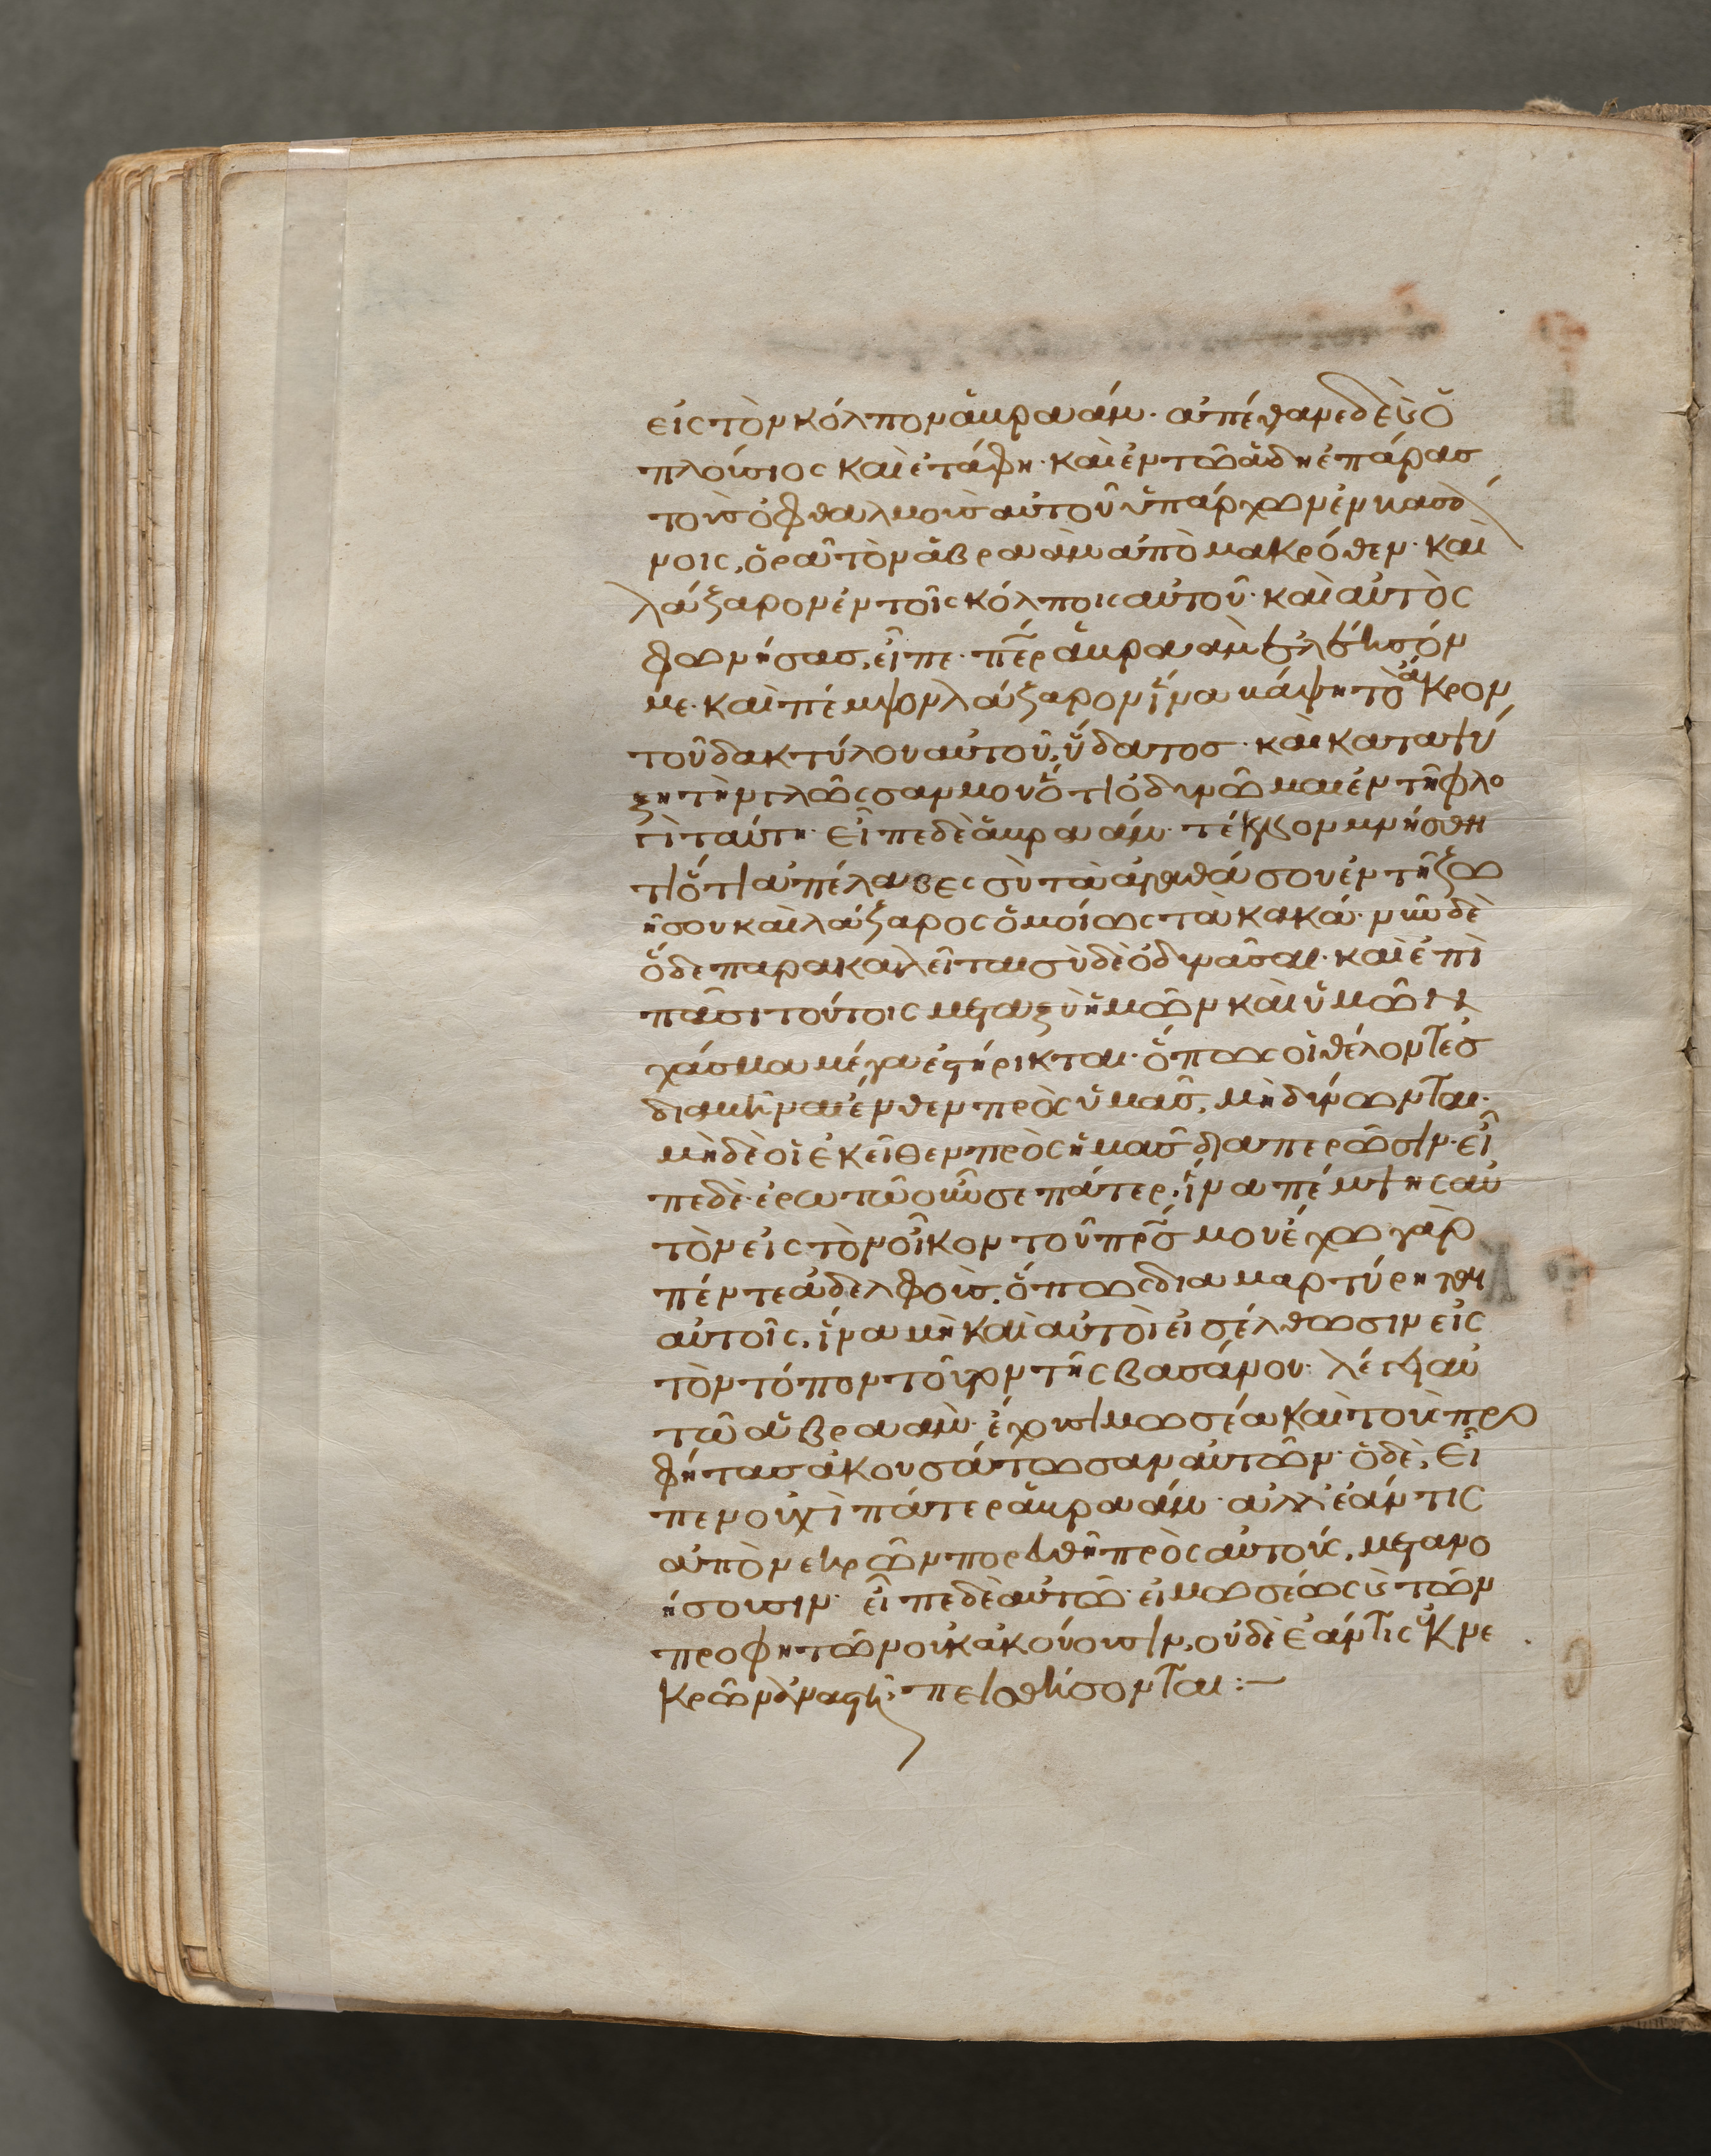 εἰς τὸν κόλπον ἀβραάμ· ἀπέθανε δὲ κ(αὶ) ὁ
πλούσιος καὶ ἐτάφη· καὶ ἐν τῶ ἅδη ἐπάρας
τοὺς ὀφθαλμοὺς αὐτοῦ ὑπάρχων ἐν βασά
νοις, ὁρᾶ τὸν ἀβραὰμ ἀπὸ μακρόθεν· καὶ
λάζαρον ἐν τοῖς κόλποις αὐτοῦ· καὶ αὐτὸς
φωνήσας, εἶπε· περ ἀβραὰμ ἐλέησόν
με· καὶ πέμψον λάζαρον ἵνα βάψη τὸ ἄκρον
τοῦ δακτύλου αὐτοῦ ὕδατος· καὶ καταψύ
ξη τὴν γλῶσσαν μου ὅτι ὀδυνῶμαι ἐν τῆ φλο
γὶ ταύτη· εἶπε δὲ ἀβραάμ· τέκνον μνήσθη
τι ὅτι ἀπέλαβες σὺ τὰ ἀγαθά σου ἐν τῆ ζω
ῆ σου καὶ λάζαρος ὁμοίως τὰ κακά· νῦν δὲ
ὅδε παρακαλεῖται σὺ δὲ ὀδυνᾶσαι· καὶ ἐπὶ
πᾶσι τούτοις μεταξὺ ἡμῶν καὶ ὑμῶν
χάσμα μέγα ἐστήρικται· ὅπως οἱ θέλοντες
διαβῆναι ἔνθεν πρὸς ὑμᾶς, μὴ δύνωνται·
μὴ δὲ οἱ ἐκεῖθεν πρὸς ἡμᾶς διαπερῶσιν· εἶ
πε δὲ· ἐρωτῶ οὖν σε πάτερ, ἵνα πέμψης αὐ
τὸν εἰς τὸν οἶκον τοῦ πρς μου ἔχω γὰρ
πέντε ἀδελφούς. ὅπως διαμαρτύρηται
αὐτοῖς, ἵνα μὴ καὶ αὐτοὶ εἰσέλθωσιν εἰς
τὸν τόπον τοῦτον τῆς βασάνου· λέγει αὐ
τῶ ἀβραάμ· ἔχουσι μωσέα καὶ τοὺς προ
φήτας ἀκουσάτωσαν αὐτῶν· ὁ δὲ, εἶ
πεν οὐχὶ πάτερ ἀβραάμ· ἀλλ' ἐάν τις
ἀπὸ νεκρῶν πορευθῆ πρὸς αὐτούς, μετανο
ήσουσιν· εἶπε δὲ αὐτῶ· εἰ μωσέως κ(αὶ) τῶν
προφητῶν οὐκ ἀκούουσιν, οὐδὲ ἐάν τις ἐκ νε
κρῶν ἀναστῆ· πεισθήσονται :–